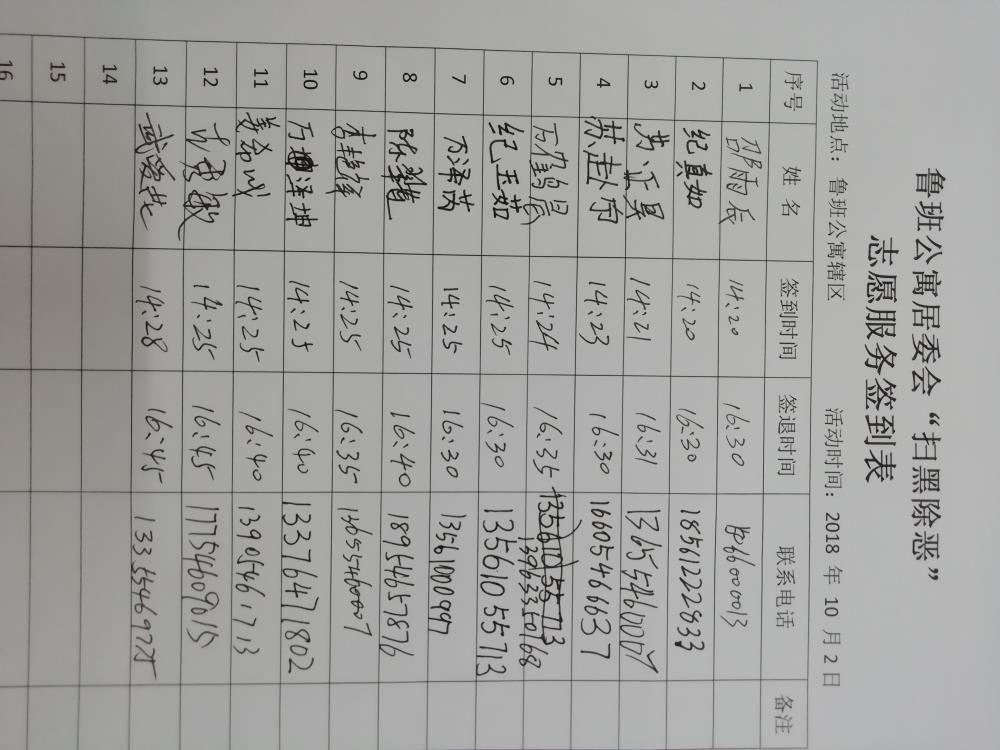 鲁班公寓居委会“扫黑除恶”
志愿服务签到表
活动地点：鲁班公寓辖区 活动时间：2018 年 10 月 2 日
序号 姓 名 签到时间 签退时间 联系电话 备注
1 邵雨辰 14:20 16:30
2 纪真如 14:20 16:30 18561222833
3 14:21 16:31 13655460067
4 14:23 16:30 16605466637
5 14:24 16:35 13561055713 13963350168
6 纪玉茹 14:25 16:30 13561055713
7 万泽芮 14:25 16:30 13561000997
8 14:25 16:40 18954657876
9 李艳辉 14:25 16:35 13655460007
10 万泽坤 14:25 16:40 13376471802
11 14:25 16:40 13905461713
12 14:25 16:45 17754609015
13 武爱芹 14:28 16:45
14
15
16